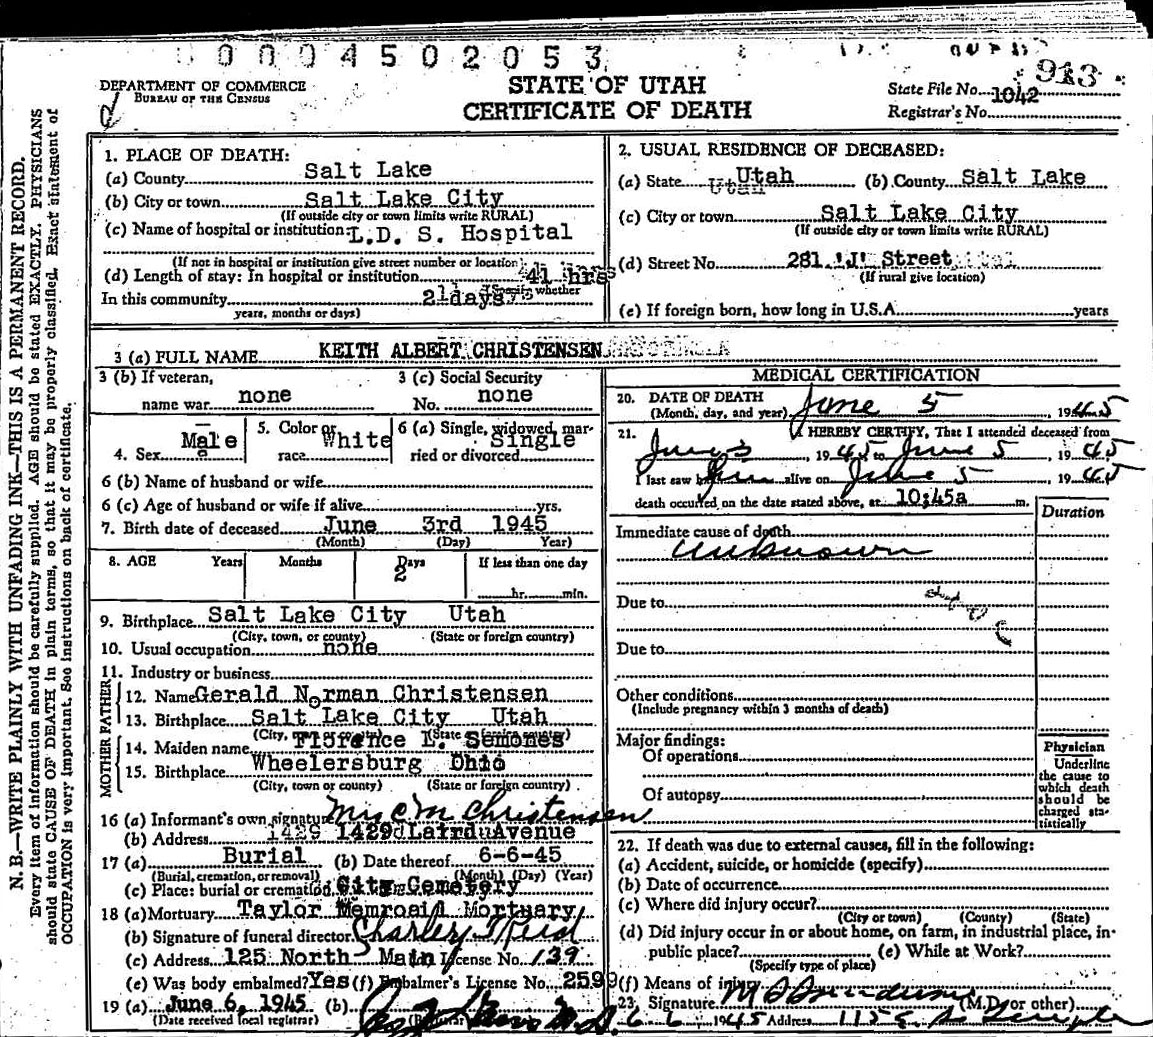 0004502053
DEPARTMENT OF COMMERCE
BUREAU OF THE CENSUS
STATE OF UTAH
CERTIFICATE OF DEATH
913
State File No. 1042
Registrar's No.
N. B.—WRITE PLAINLY WITH UNFADING INK—THIS IS A PERMANENT RECORD.
Every item of information should be carefully supplied. AGE should be stated EXACTLY. PHYSICIANS
should state CAUSE OF DEATH in plain terms, so that it may be properly classified. Exact statement of
OCCUPATION is very important. See instructions on back of certificate.
1. PLACE OF DEATH:
(a) County Salt Lake
(b) City or town Salt Lake City
(If outside city or town limits write RURAL)
(c) Name of hospital or institution: L.D. S. Hospital
(If not in hospital or institution give street number or location)
(d) Length of stay: In hospital or institution 41 hrs
(Specify whether
In this community 2 days
years, months or days)
2. USUAL RESIDENCE OF DECEASED:
(a) State Utah (b) County Salt Lake
(c) City or town Salt Lake City
(If outside city or town limits write RURAL)
(d) Street No. 281 'J' Street
(If rural give location)
(e) If foreign born, how long in U.S.A. years
3 (a) FULL NAME KEITH ALBERT CHRISTENSEN
3 (b) If veteran, name war none
3 (c) Social Security No. none
4. Sex Male
5. Color or race White
6 (a) Single, widowed, married or divorced Single
6 (b) Name of husband or wife
6 (c) Age of husband or wife if alive yrs.
7. Birth date of deceased June 3rd 1945
(Month) (Day) Year)
8. AGE Years Months Days 2 If less than one day
hr. min.
9. Birthplace Salt Lake City Utah
(City, town, or county) (State or foreign country)
10. Usual occupation none
11. Industry or business
FATHER
12. Name Gerald Norman Christensen
13. Birthplace Salt Lake City Utah
(City, town or county) (State or foreign country)
MOTHER
14. Maiden name Florence L. Semones
15. Birthplace Wheelersburg Ohio
(City, town or county) (State or foreign country)
16 (a) Informant's own signature Mrs C M Christensen
(b) Address 1429 Laird Avenue
17 (a) Burial (b) Date thereof 6-6-45
(Burial, cremation, or removal) (Month) (Day) (Year)
(c) Place: burial or cremation City Cemetery
18 (a) Mortuary Taylor Memroail Mortuary
(b) Signature of funeral director
(c) Address 125 North Main License No. 139
(e) Was body embalmed? Yes (f) Embalmer's License No. 2599
19 (a) June 6, 1945 (b)
(Date received local registrar) (Registrar)
MEDICAL CERTIFICATION
20. DATE OF DEATH
(Month, day, and year) June 5, 1945
21. I HEREBY CERTIFY, That I attended deceased from
June 3, 1945 to June 5, 1945
I last saw him alive on June 5 1945
death occurred on the date stated above, at 10:45a m.
Duration
Immediate cause of death
Unknown
Due to
Due to
Other conditions
(Include pregnancy within 3 months of death)
Major findings:
Of operations
Of autopsy
Physician
Underline
the cause to
which death
should be
charged sta-
tistically
22. If death was due to external causes, fill in the following:
(a) Accident, suicide, or homicide (specify)
(b) Date of occurrence
(c) Where did injury occur?
(City or town) (County) (State)
(d) Did injury occur in or about home, on farm, in industrial place, in
public place? (e) While at Work?
(Specify type of place)
(f) Means of injury
23. Signature (M.D. or other)
6 6 1945 Address 115 E. So Temple